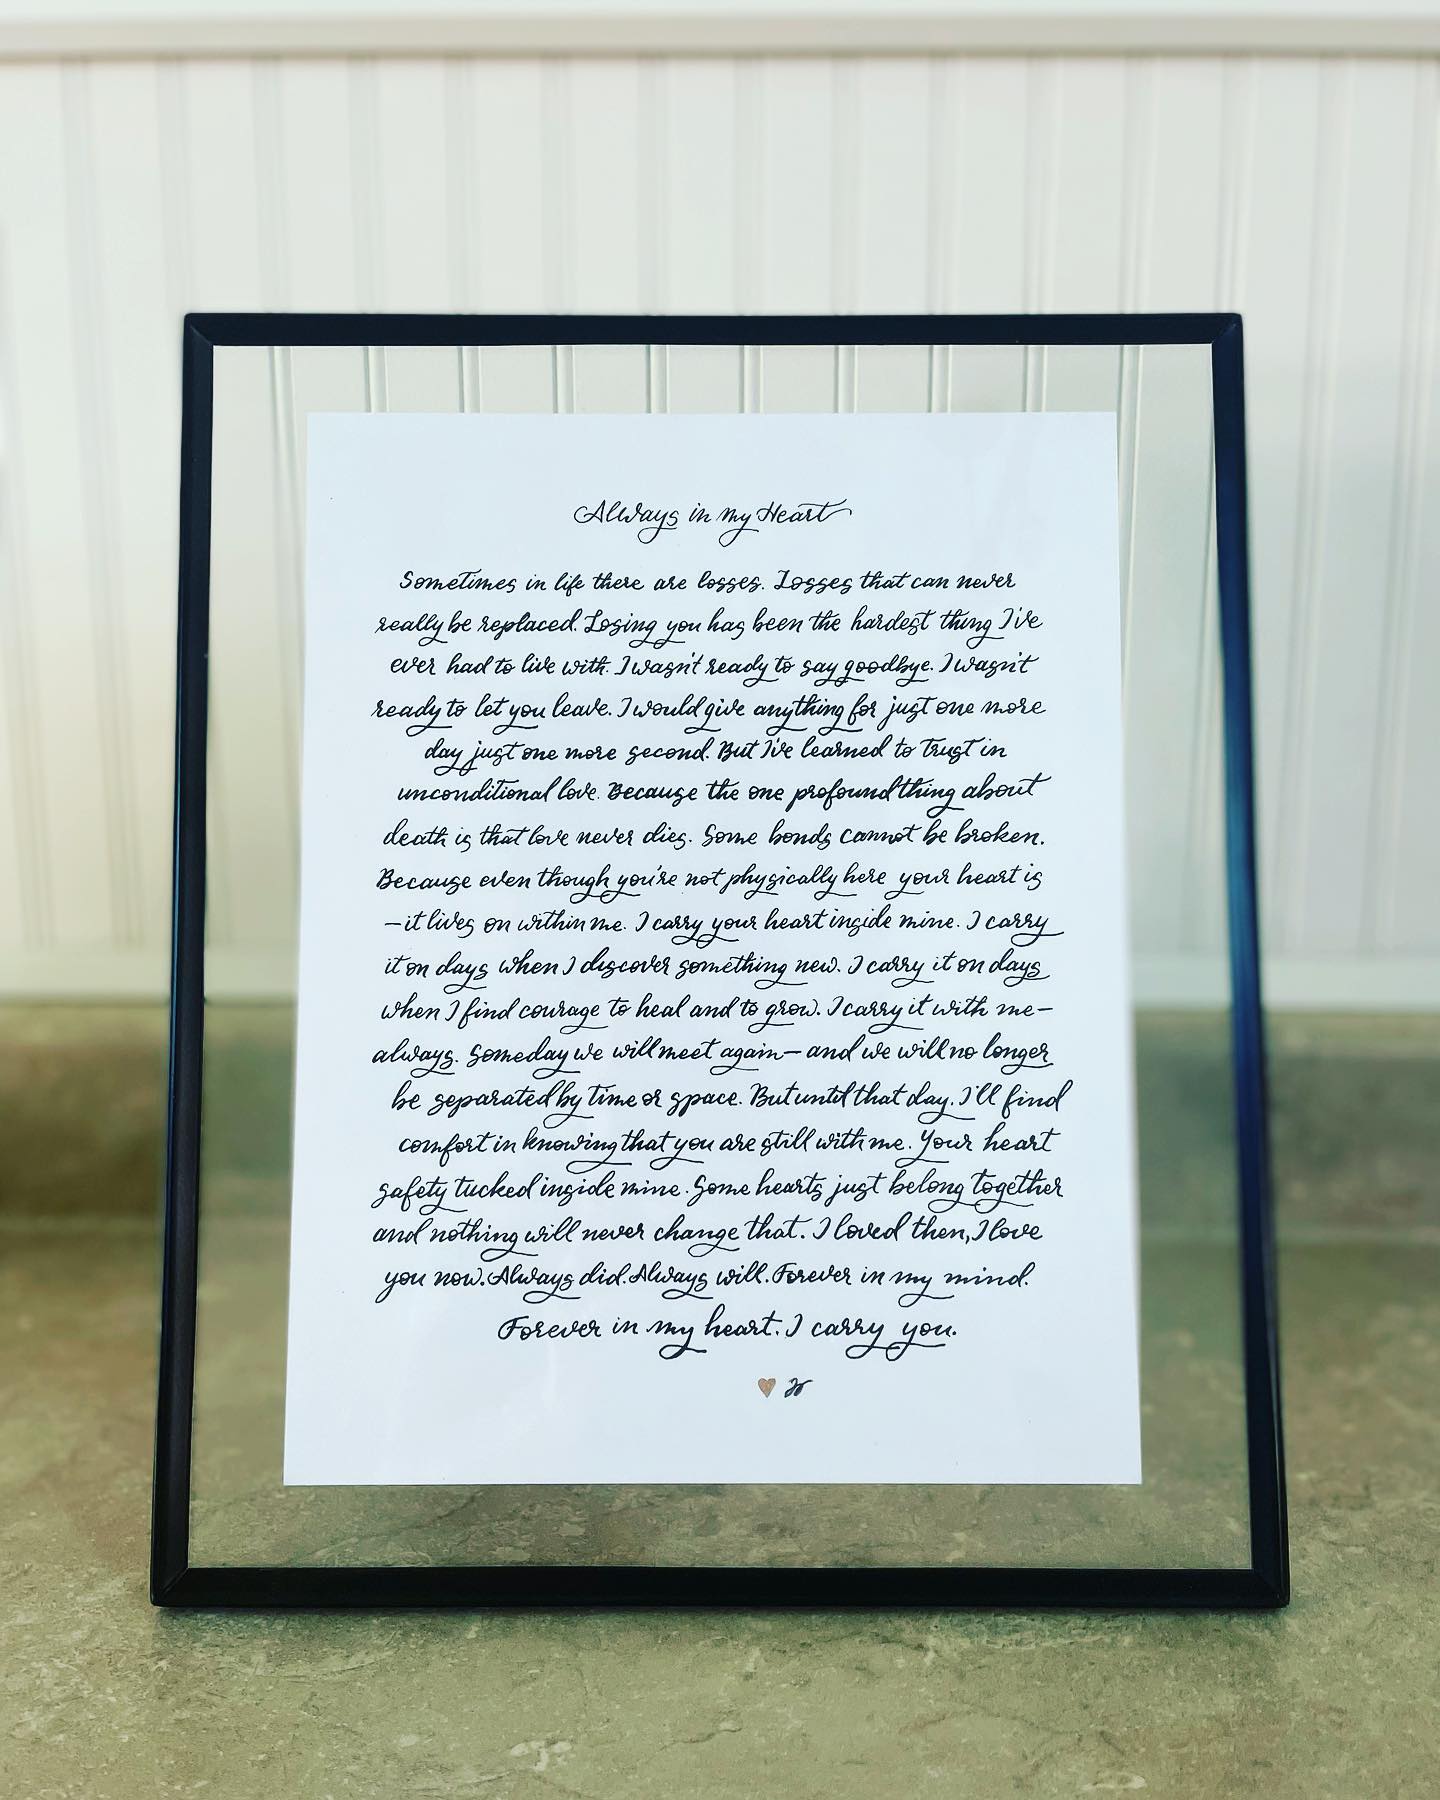 Always in my Heart
Sometimes in life there are losses. Losses that can never
really be replaced. Losing you has been the hardest thing I've
ever had to live with. I wasn't ready to say goodbye. I wasn't
ready to let you leave. I would give anything for just one more
day just one more second. But I've learned to trust in
unconditional love. Because the one profound thing about
death is that love never dies. Some bonds cannot be broken.
Because even though you're not physically here your heart is
—it lives on within me. I carry your heart inside mine. I carry
it on days when I discover something new. I carry it on days
when I find courage to heal and to grow. I carry it with me—
always. Someday we will meet again— and we will no longer
be separated by time or space. But until that day, I'll find
comfort in knowing that you are still with me. Your heart
safety tucked inside mine. Some hearts just belong together
and nothing will never change that. I loved then, I love
you now. Always did. Always will. Forever in my mind.
Forever in my heart. I carry you.